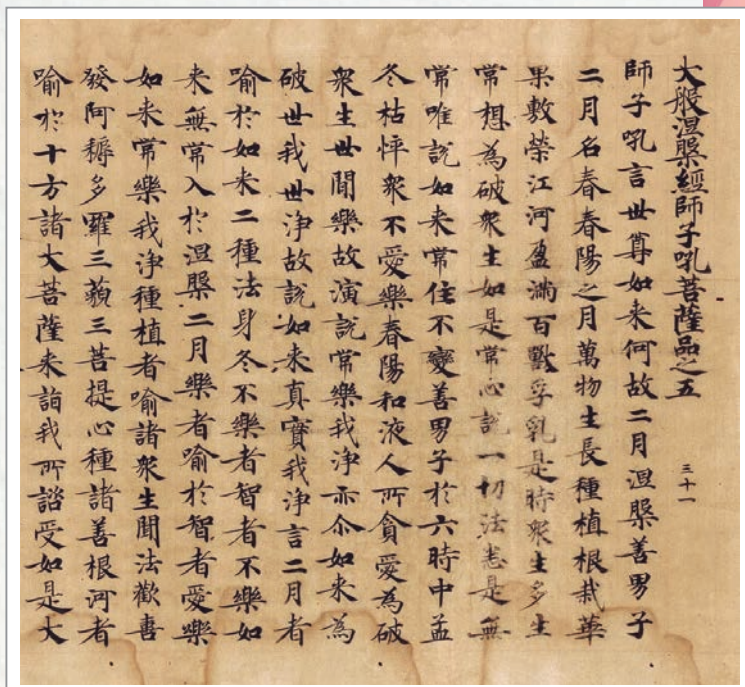 大般涅槃經師子吼菩薩品之五 三十一
師子吼言世尊如来何故二月涅槃善男子
二月名春春陽之月萬物生長種植根栽華
果敷榮江河盈滿百獸孚乳是時衆生多生
常想為破衆生如是常心說一切法悉是無
常唯說如来常住不變善男子於六時中孟
冬枯悴衆不愛樂春陽和液人所貪愛為破
衆生世閒樂故演說常樂我淨亦尒如来為
破世我世淨故說如来真實我淨言二月者
喻於如来二種法身冬不樂者智者不樂如
来無常入於涅槃二月樂者喻於智者愛樂
如来常樂我淨種植者喻諸衆生聞法歡喜
發阿耨多羅三藐三菩提心種諸善根河者
喻於十方諸大菩薩来詣我所諮受如是大